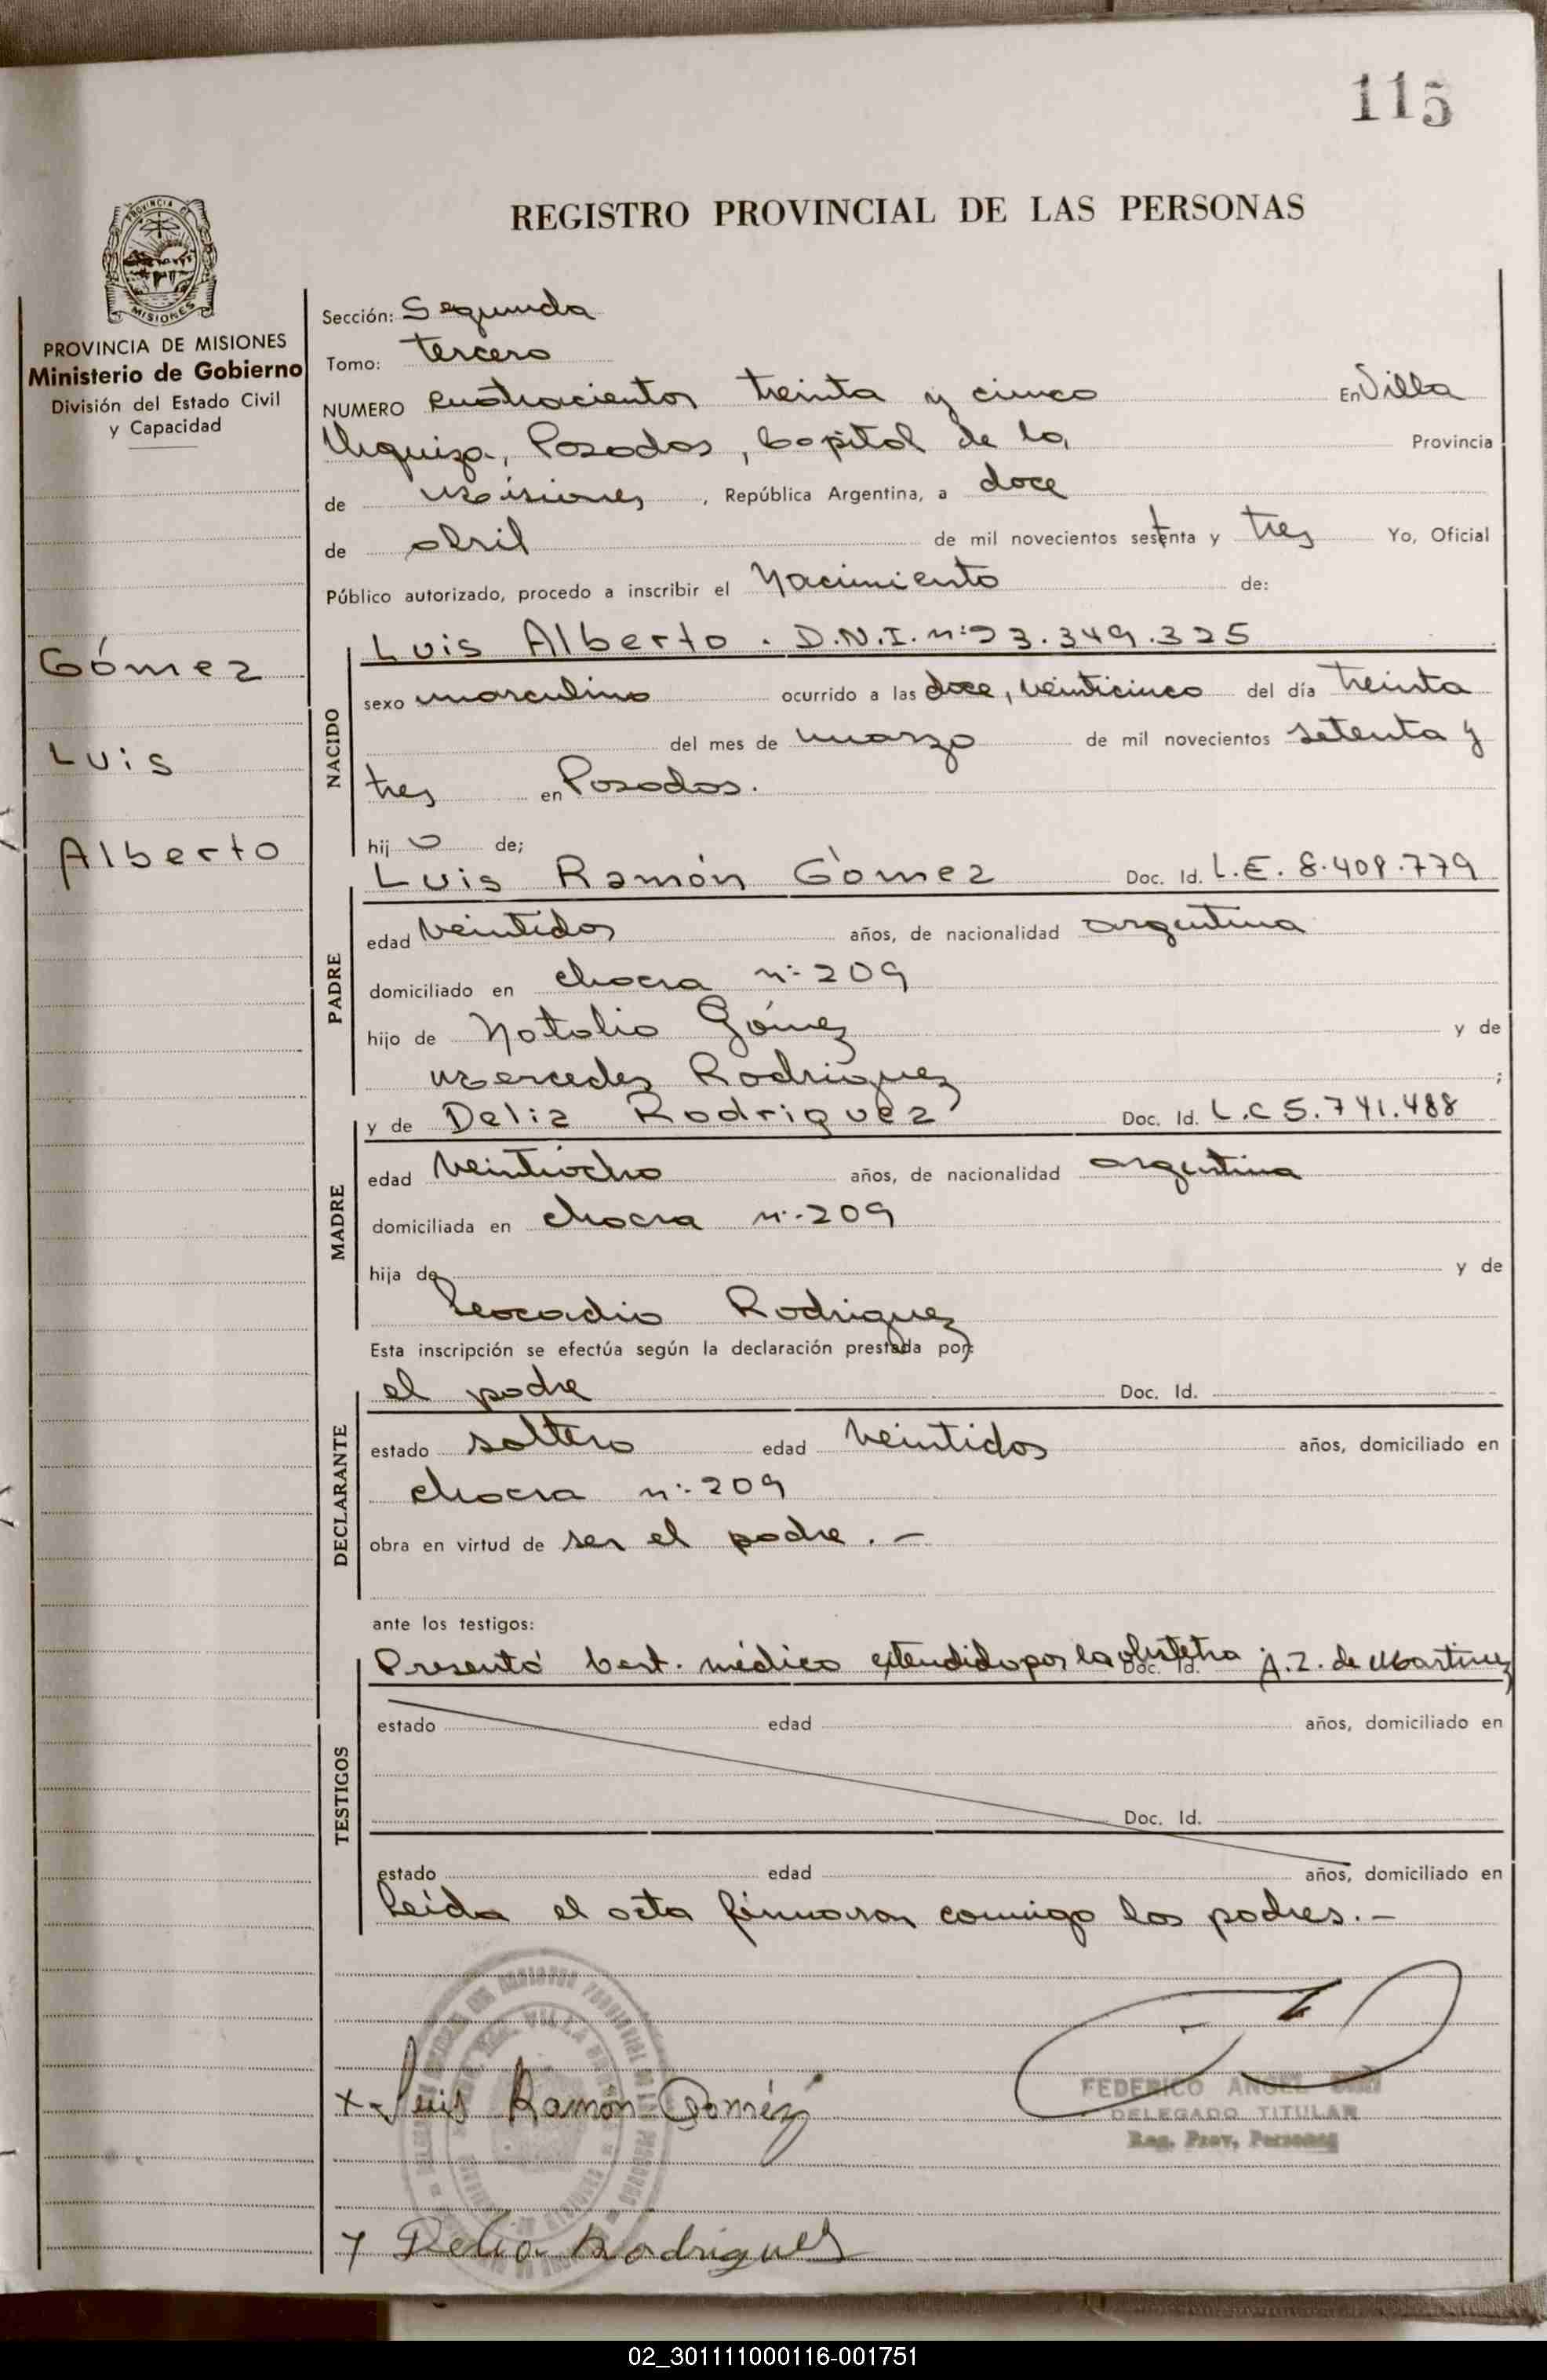 115
REGISTRO PROVINCIAL DE LAS PERSONAS
PROVINCIA DE MISIONES
MISIONES
PROVINCIA DE MISIONES
Ministerio de Gobierno
División del Estado Civil
y Capacidad
Gómez
Luis
Alberto
Sección: Segunda
Tomo: tercero
NUMERO cuatrocientos treinta y cinco En Villa
Urquiza, Posadas, Capital de la Provincia
de Misiones, República Argentina, a doce
de abril de mil novecientos setenta y tres Yo, Oficial
Público autorizado, procedo a inscribir el Nacimiento de:
NACIDO
Luis Alberto . D.N.I. nº 23.349.325
sexo masculino ocurrido a las doce, veinticinco del día treinta
del mes de marzo de mil novecientos setenta y
tres en Posadas.
hij o de;
PADRE
Luis Ramón Gómez Doc. Id. L.E. 8.409.779
edad veintidos años, de nacionalidad argentina
domiciliado en chacra nº 209
hijo de Natalio Gómez y de
Mercedes Rodriguez ;
MADRE
y de Delia Rodriguez Doc. Id. L.C 5.741.488
edad veintiocho años, de nacionalidad argentina
domiciliada en chacra nº 209
hija de y de
Leocadia Rodriguez
Esta inscripción se efectúa según la declaración prestada por:
DECLARANTE
el padre Doc. Id.
estado soltero edad veintidos años, domiciliado en
chacra nº 209
obra en virtud de ser el padre. –
ante los testigos:
TESTIGOS
Presentó Cert. médico extendido por la obstetra A. Z. de Martinez
Doc. Id.
estado edad años, domiciliado en
Doc. Id.
estado edad años, domiciliado en
Leída el acta firmaron conmigo los padres. –
x Luis Ramón Goméz
FEDERICO ANGEL
DELEGADO TITULAR
Reg. Prov. Personas
Delia Rodriguez
02_301111000116-001751